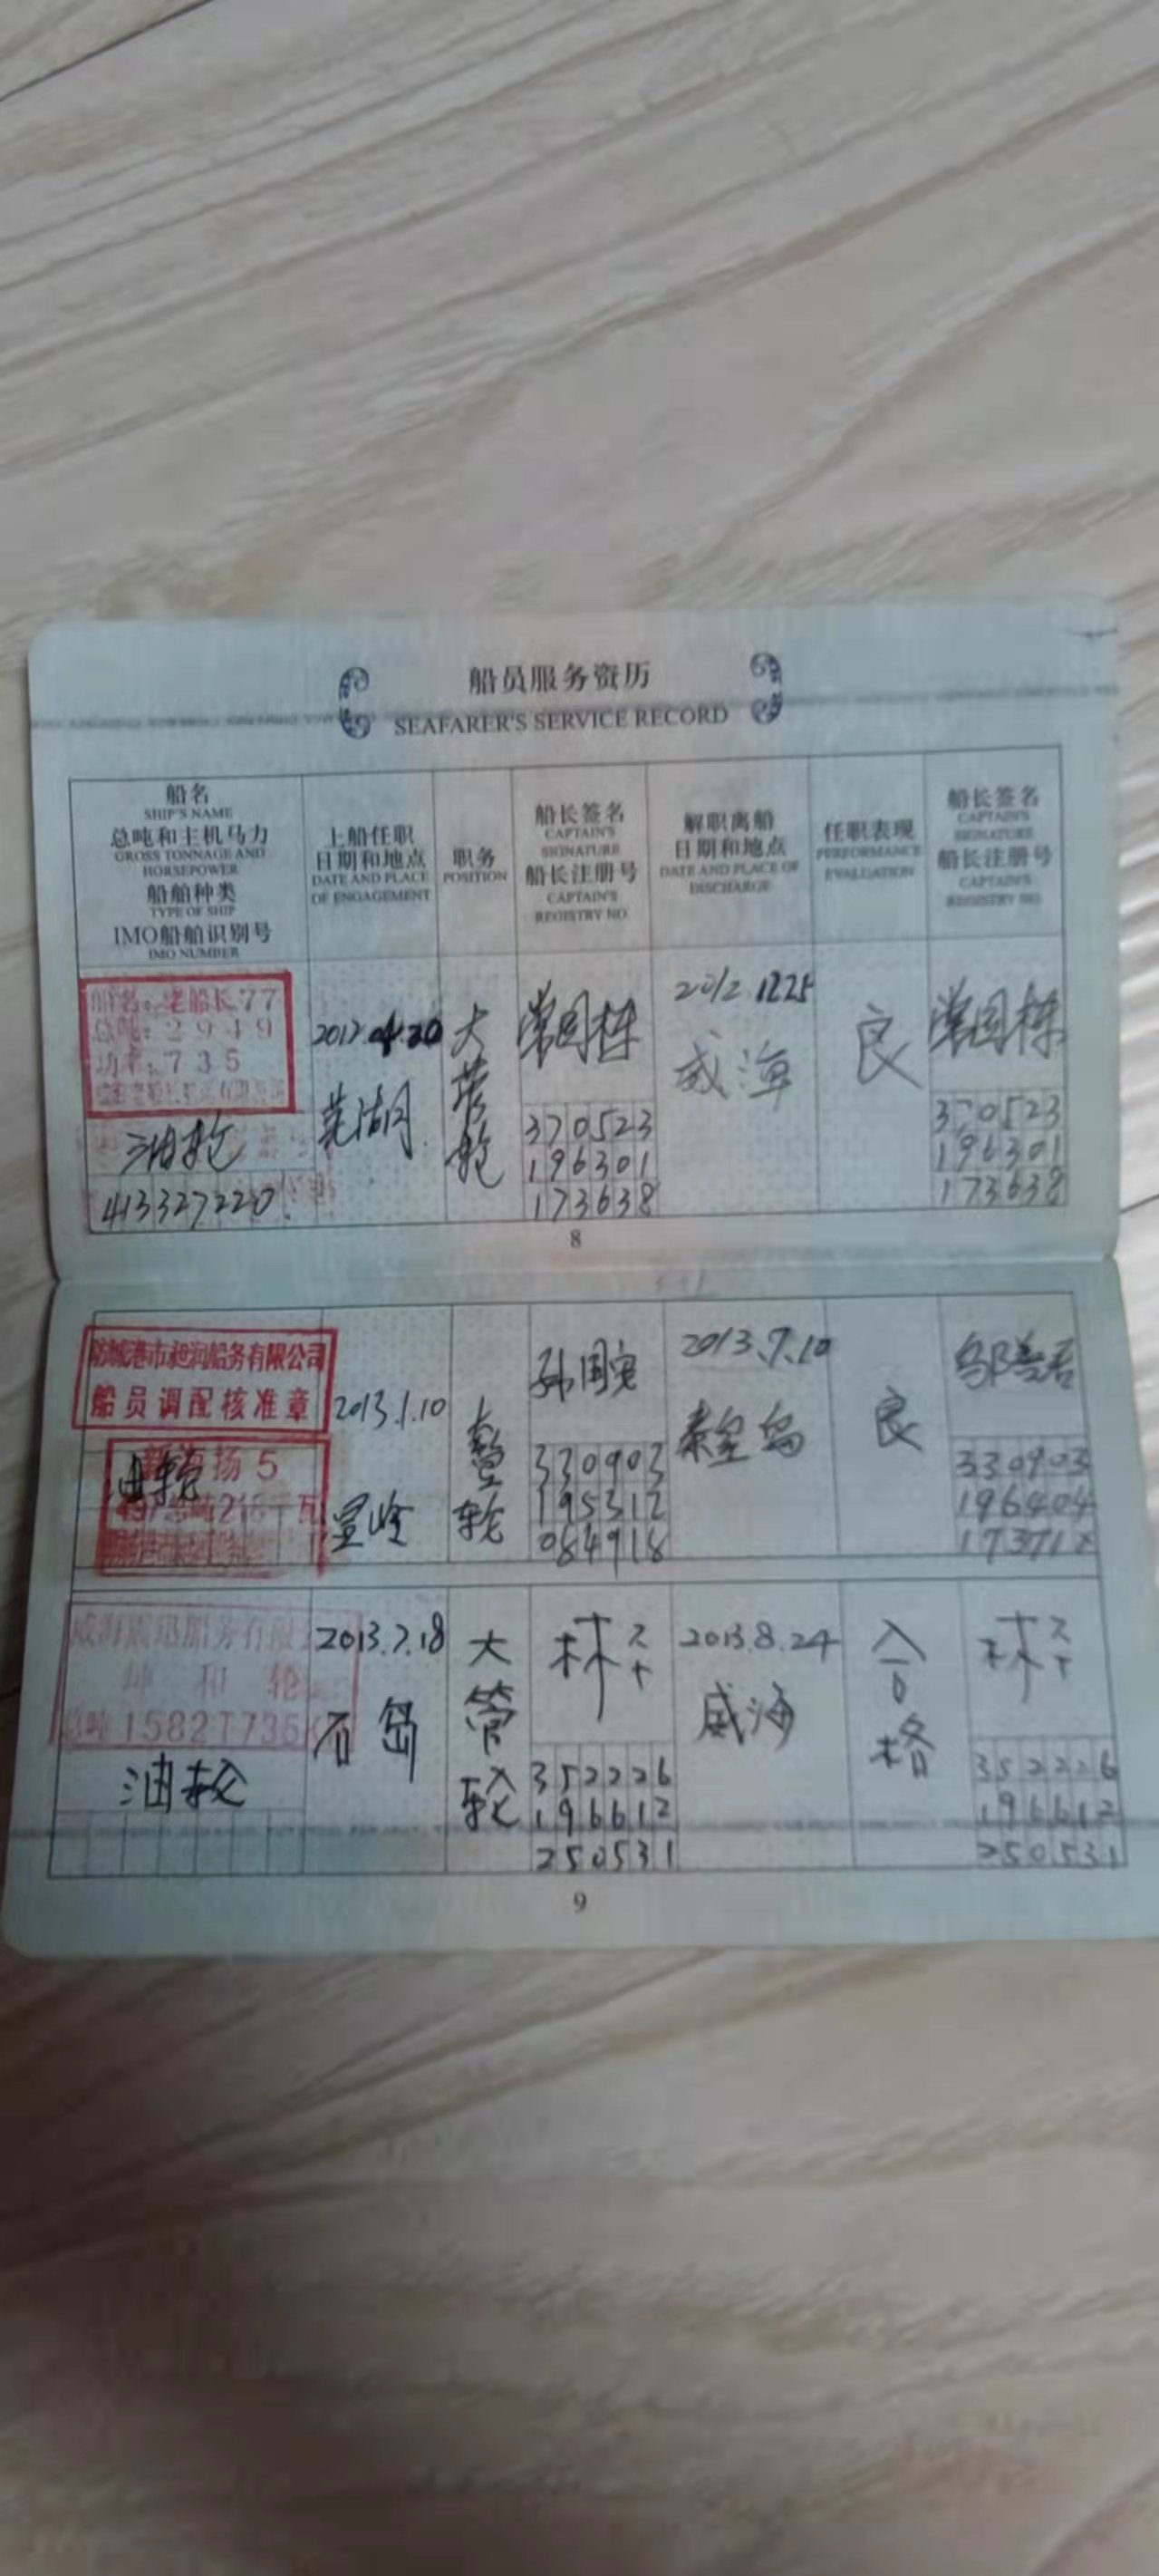 船员服务资历
SEAFARER'S SERVICE RECORD
船名
SHIP'S NAME
总吨和主机马力
GROSS TONNAGE AND
HORSEPOWER
船舶种类
TYPE OF SHIP
IMO船舶识别号
IMO NUMBER
上船任职
日期和地点
DATE AND PLACE
OF ENGAGEMENT
职务
POSITION
船长签名
CAPTAIN'S
SIGNATURE
船长注册号
CAPTAIN'S
REGISTRY NO.
解职离船
日期和地点
DATE AND PLACE OF
DISCHARGE
任职表现
PERFORMANCE
EVALUATION
船长签名
CAPTAIN'S
SIGNATURE
船长注册号
CAPTAIN'S
REGISTRY NO.
船名：老船长77
总吨：2949
功率：735
油轮
413327220
2012.04.20
芜湖
大管轮
常国栋
370523
196301
173638
2012.12.25
威海
良
常国栋
370523
196301
173638
8
防城港市昶润船务有限公司
船员调配核准章
扬5
油轮
2013.1.10
大管轮
孙国宽
330903
195312
084918
2013.7.10
秦皇岛
良
330903
196404
威海
船务有限
和 轮
总吨1582T735
油轮
2013.7.18
石岛
大管轮
林
352226
196612
250531
2013.8.24
威海
合格
林
352226
196612
250531
9